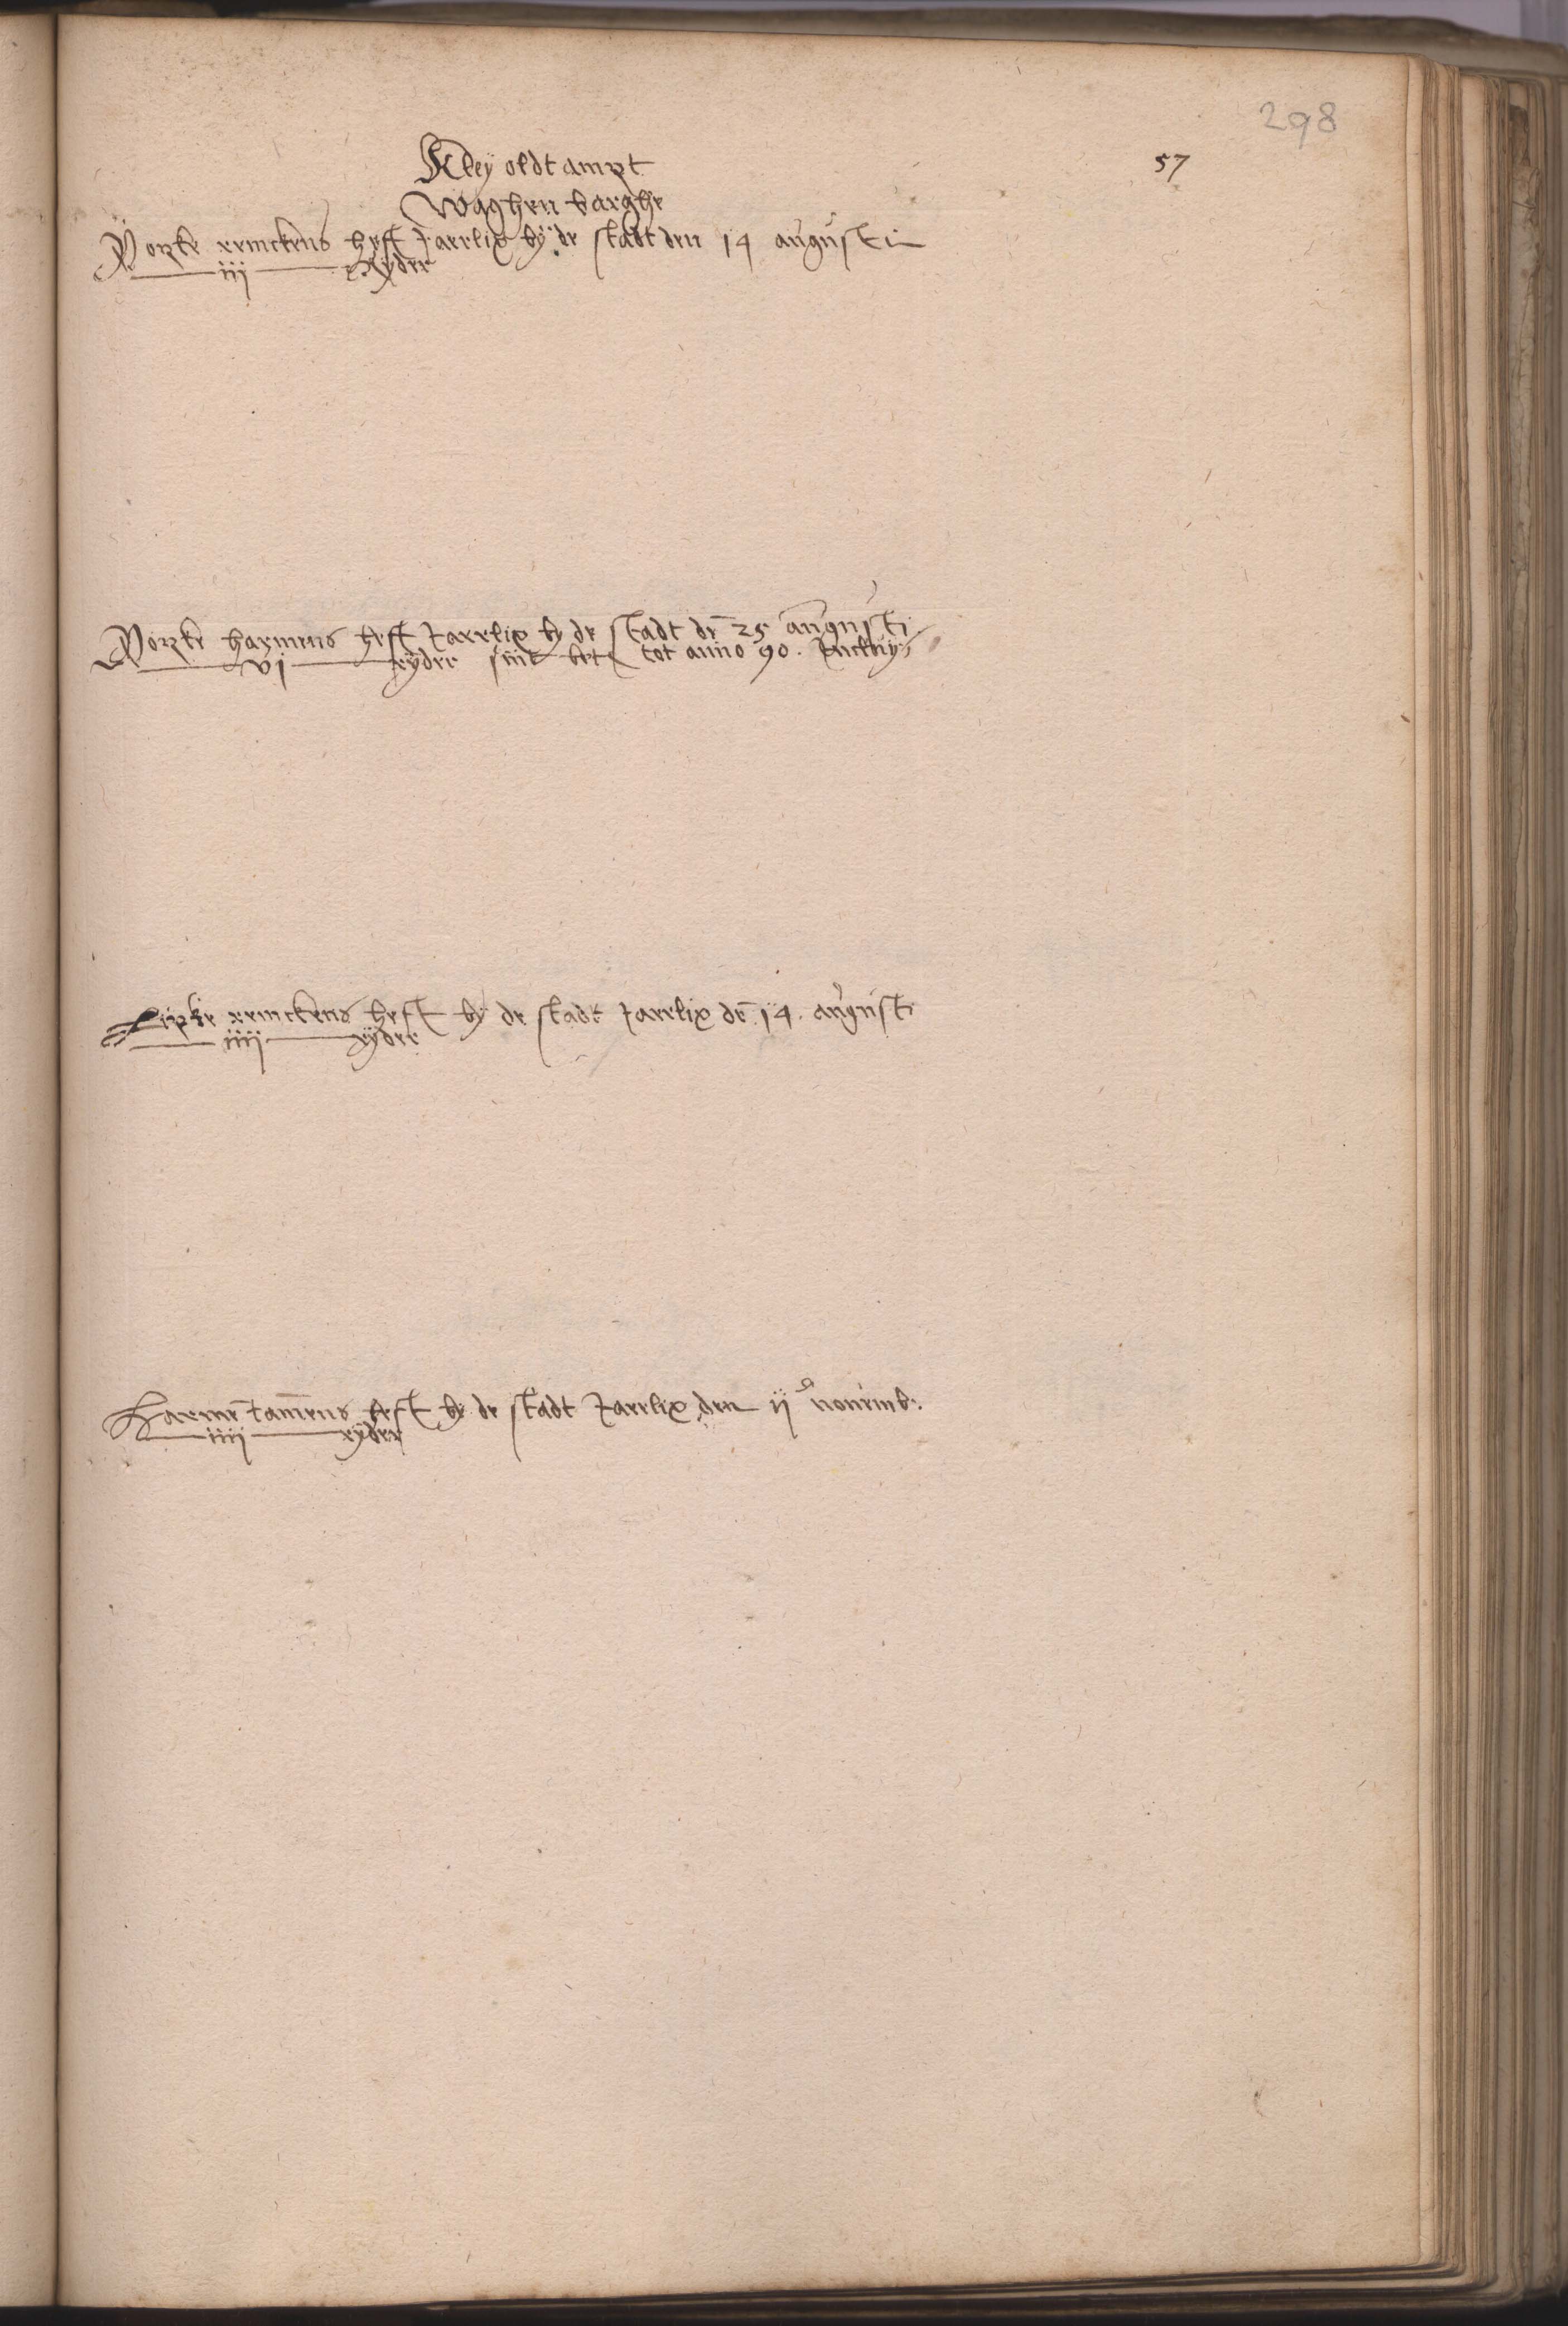 298
57
Kley oldt ampt
Waghen barghe
Popke remckens heft Jaerlix by de stadt den 14 augusti
iij Ryder
Popke harmens heft Jaerlix by de stadt de 25 augusti
vj ryder sint bet tot anno 90.
remckens heft by de stadt Jaerlix de 14. augusti
iiij ryder
Harme tamens heft by de stadt Jaerlix den ij novemb:
iiij ryder